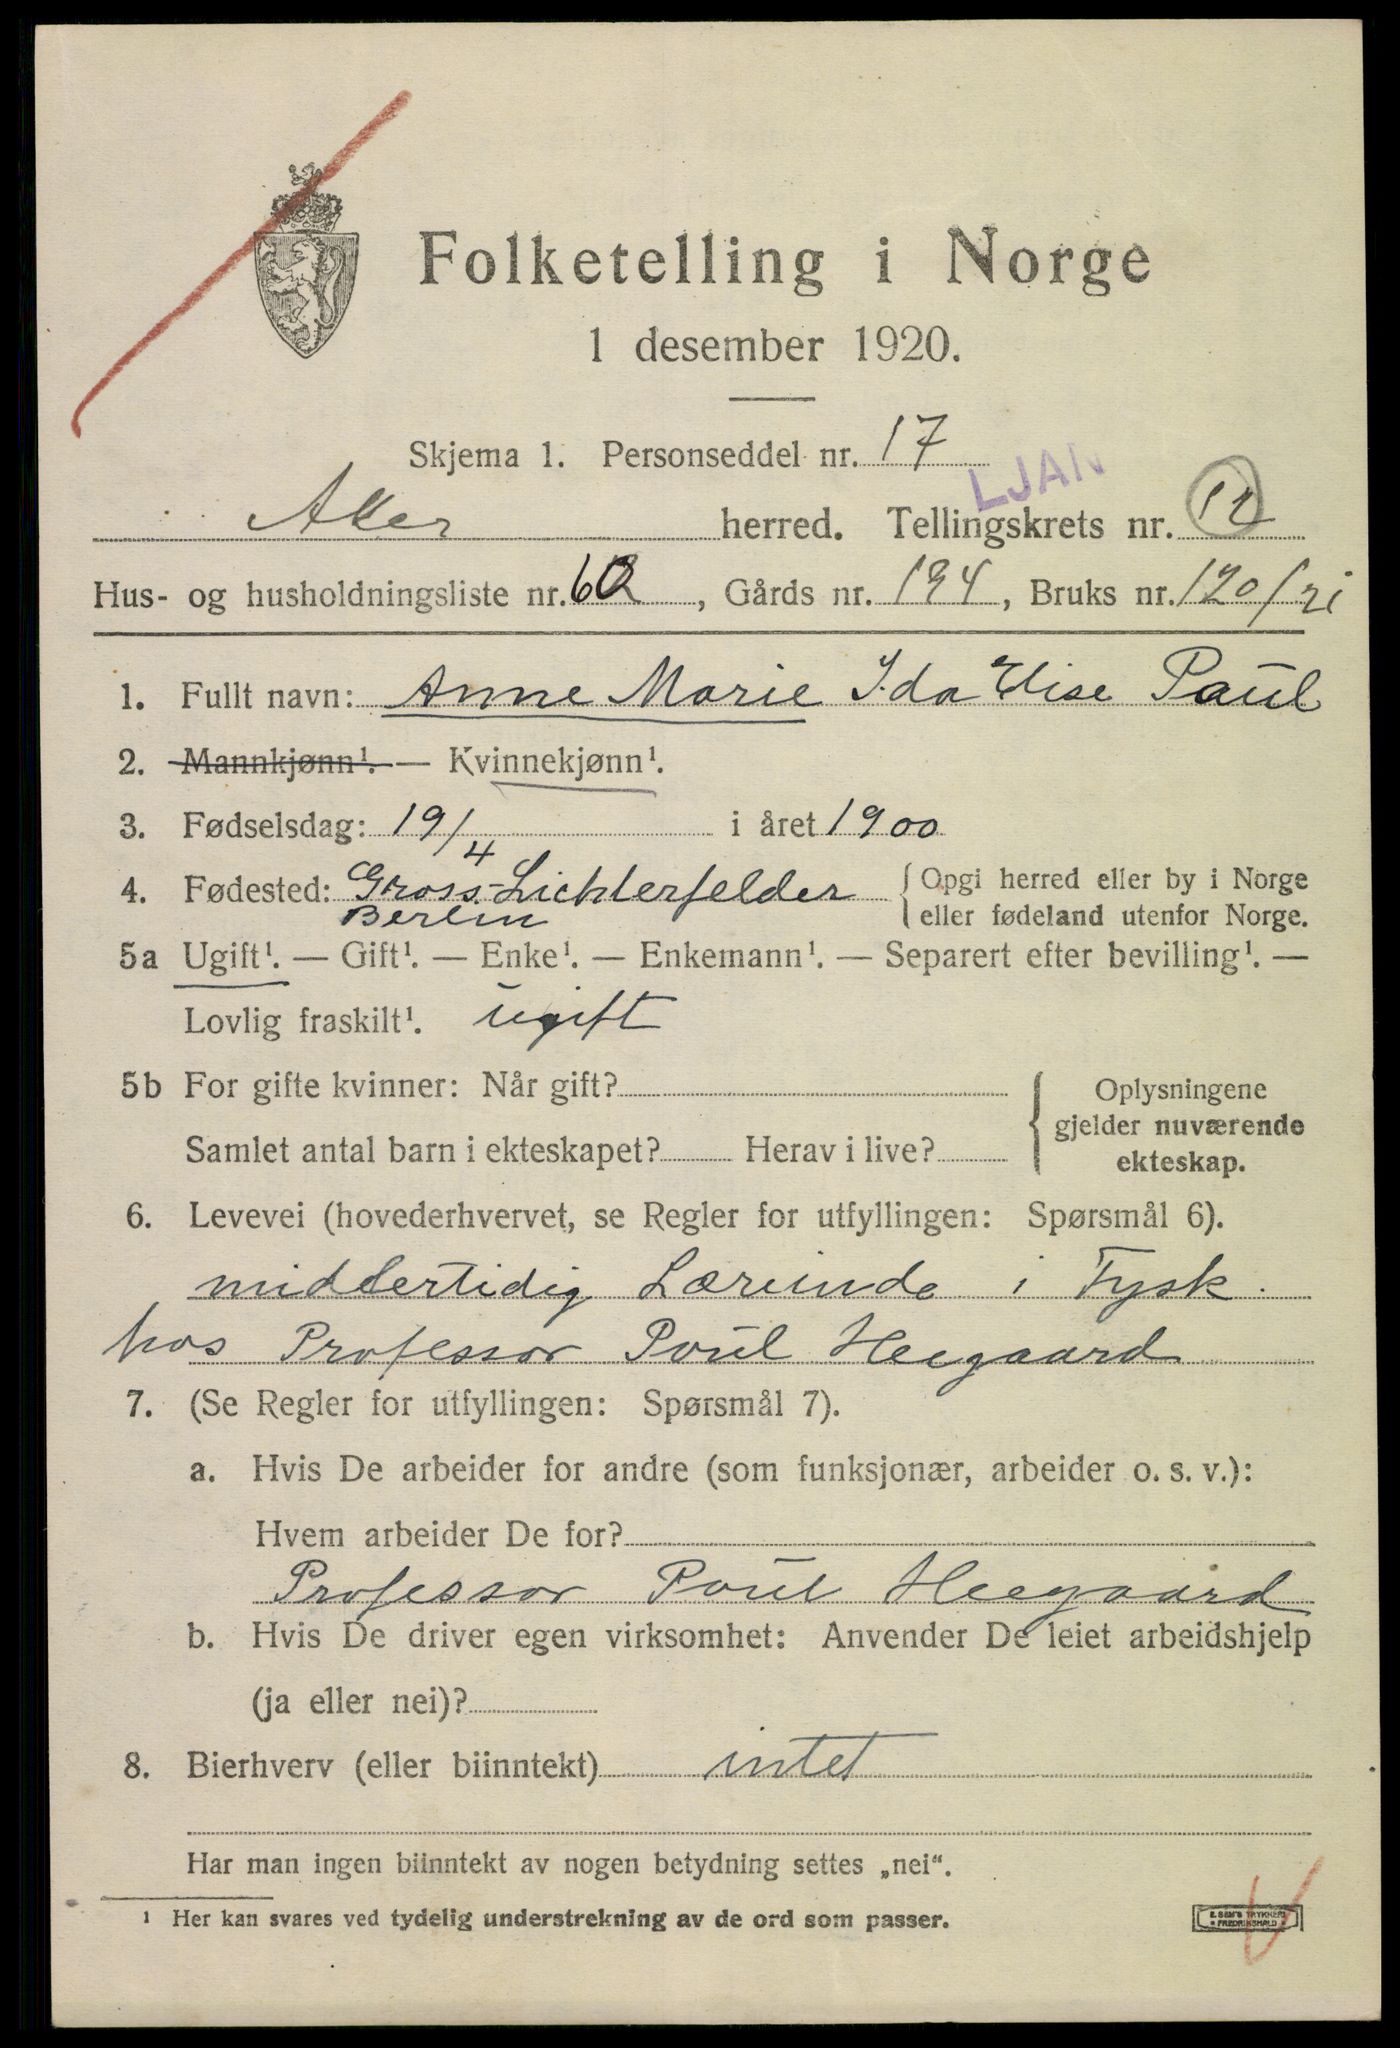 Folketelling i Norge
1 desember 1920.
Skjema 1. Personseddel nr. 17
LJAN
Aker herred. Tellingskrets nr. 12
Hus- og husholdningsliste nr. 60, Gårds nr. 194, Bruks nr. 120/21
1. Fullt navn: Anne Marie Ida Elise Paul
2. Mannkjønn¹. — Kvinnekjønn¹.
3. Fødselsdag: 19/4 i året 1900
4. Fødested: Gross-Lichterfelder Berlin
Opgi herred eller by i Norge
eller fødeland utenfor Norge.
5a Ugift¹. — Gift¹. — Enke¹. — Enkemann¹. — Separert efter bevilling¹. —
Lovlig fraskilt¹. ugift
5b For gifte kvinner: Når gift?
Samlet antal barn i ekteskapet? Herav i live?
Oplysningene
gjelder nuværende
ekteskap.
6. Levevei (hovederhvervet, se Regler for utfyllingen: Spørsmål 6).
midlertidig Lærinde i Tysk.
hos Professor Poul Heegaard
7. (Se Regler for utfyllingen: Spørsmål 7).
a. Hvis De arbeider for andre (som funksjonær, arbeider o. s. v.):
Hvem arbeider De for?
Professor Poul Heegaard
b. Hvis De driver egen virksomhet: Anvender De leiet arbeidshjelp
(ja eller nei)?
8. Bierhverv (eller biinntekt) intet
Har man ingen biinntekt av nogen betydning settes „nei“.
¹ Her kan svares ved tydelig understrekning av de ord som passer.
E. SEM'S TRYKKERI
FREDRIKSHALD